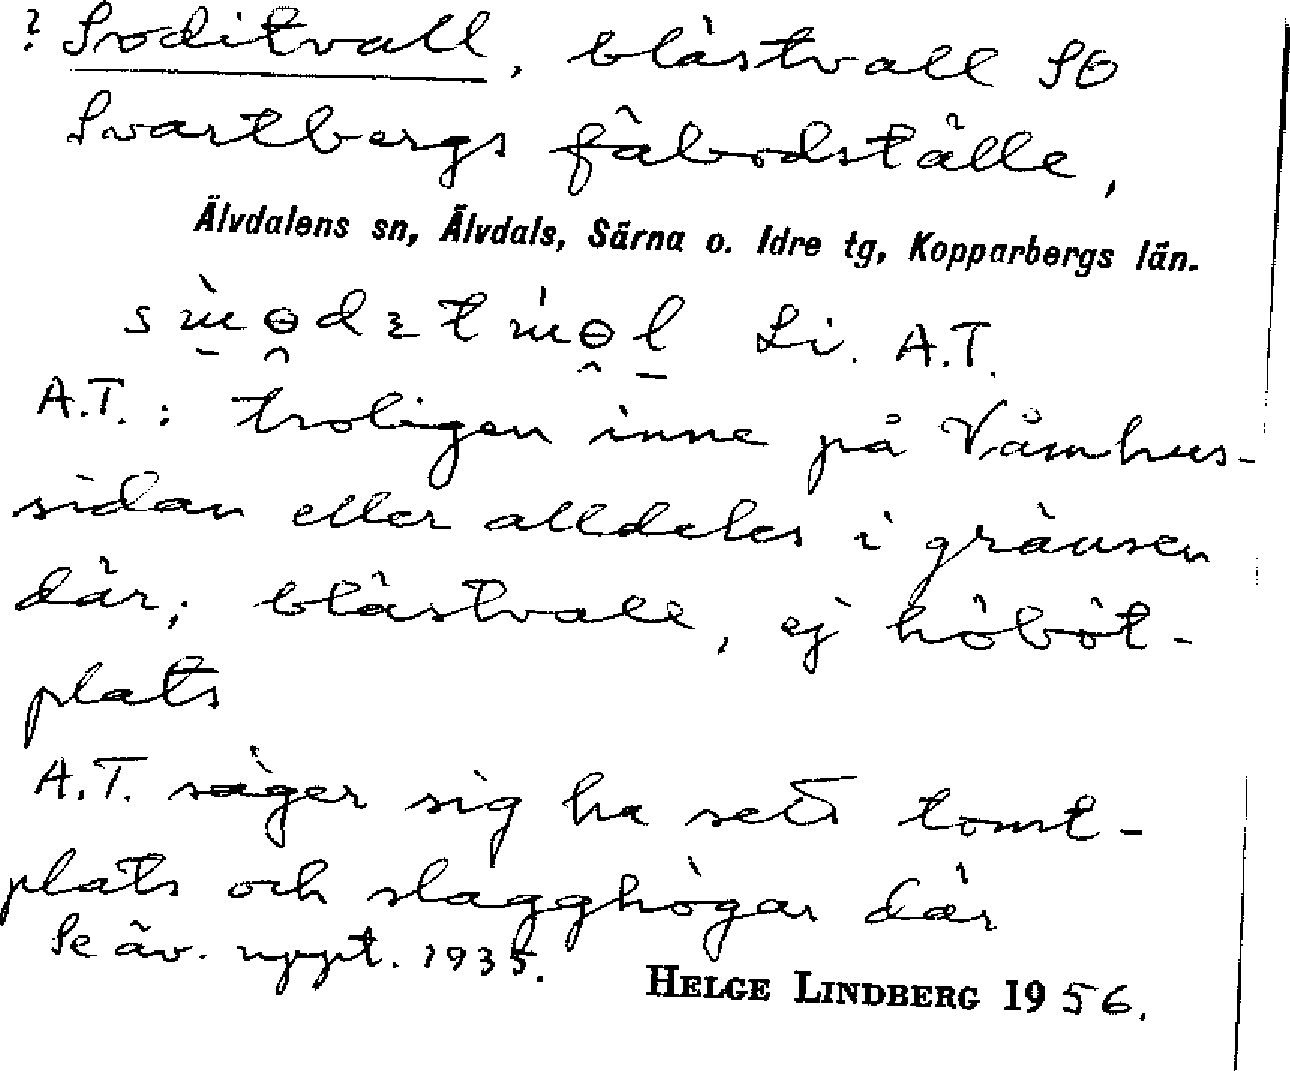 ? Soditvall, blästvall SO
Svartbergs fäbodställe,
Älvdalens sn, Älvdals, Särna o. Idre tg, Kopparbergs län.
Li. A.T.
A.T.: troligen inne på Våmhus-
sidan eller alldeles i gränsen
där; blästvall, ej höböt-
plats
A.T. säger sig ha sett tomt-
plats och slagghögar där
Se äv. uppt. 1935.
HELGE LINDBERG 1956.